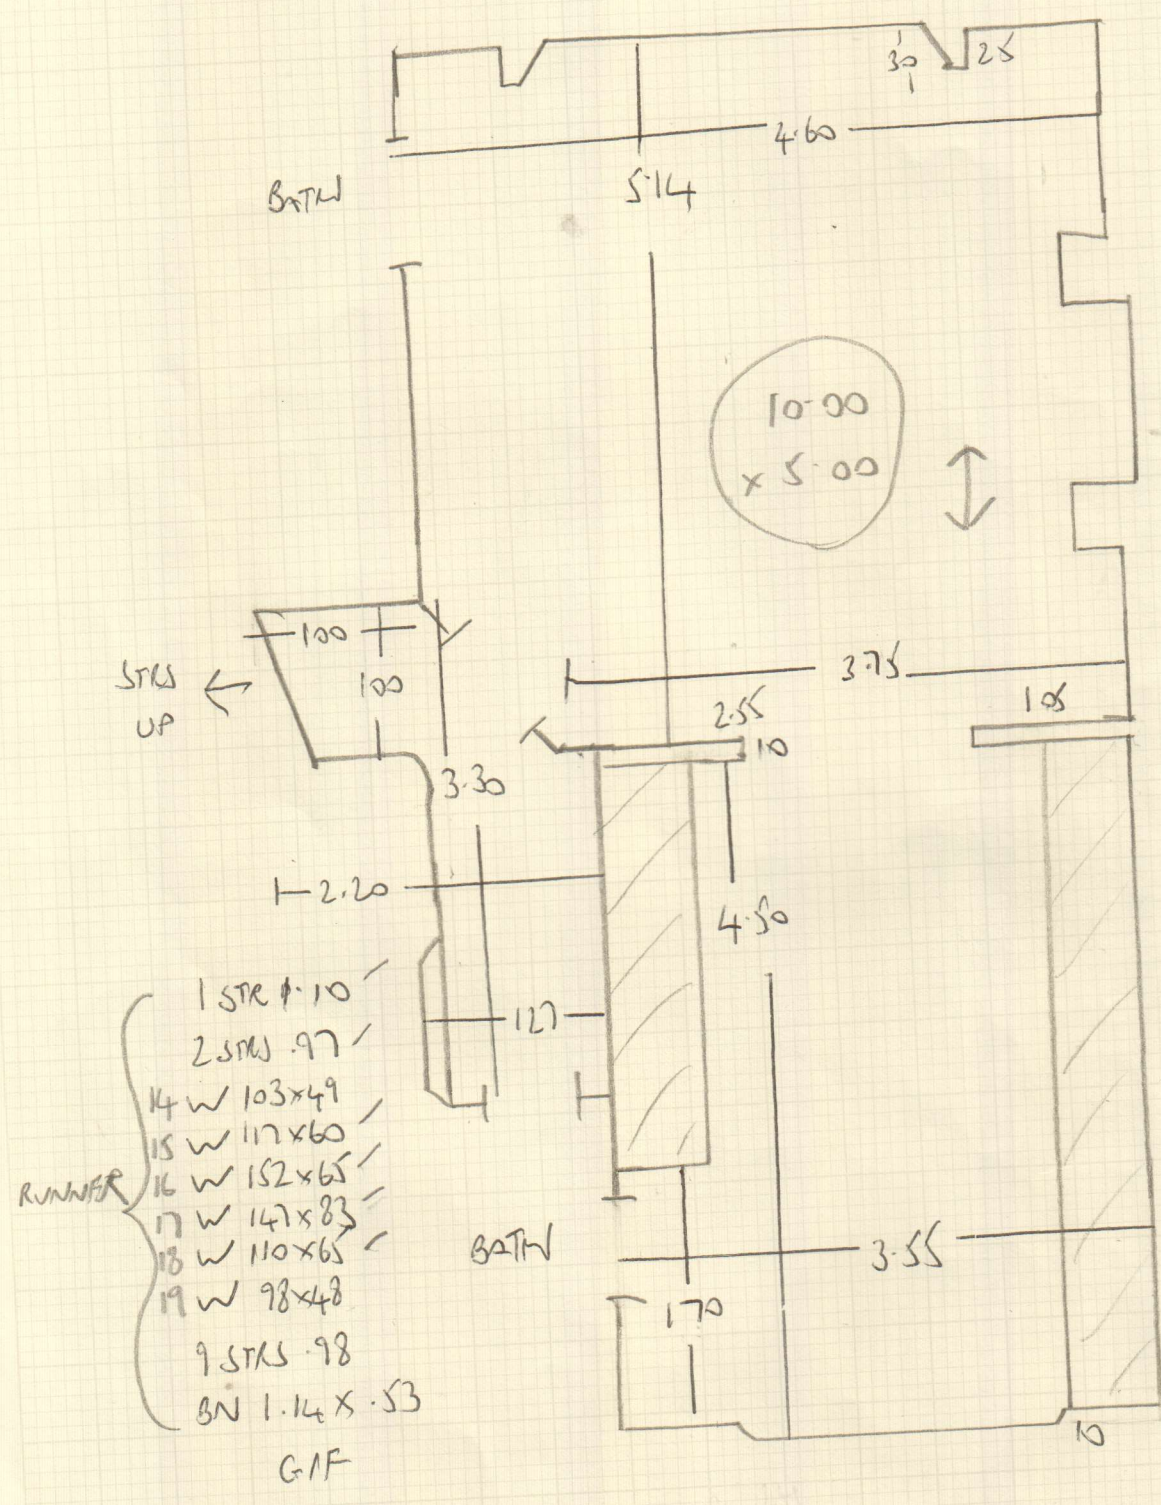 30 25
4.60
5.14
BATH
10.00
x 5.00
100
100
STRS
UP
3.75
2.55
105
10
3.30
2.20
4.50
127
1 STR 1.10
2 STRS .97
14 W 103x49
15 W 117x60
16 W 152x65
17 W 147x83
18 W 110x65
19 W 98x48
9 STRS .98
BN 1.14 x .53
RUNNER
BATH
3.55
170
10
G/F